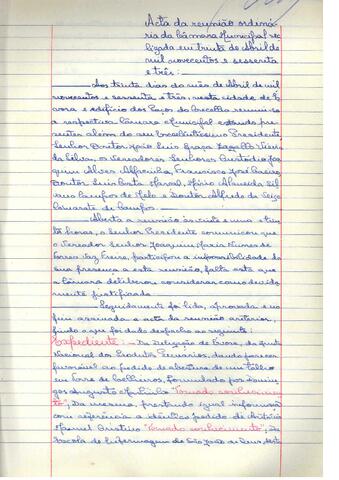 Acta da reunião ordiná-
ria da Câmara Municipal re-
alizada em trinta de Abril de
mil novecentos e sessenta
e três:
Aos trinta dias do mês de Abril de mil
novecentos e sessenta e três, nesta cidade de É-
vora e edifício dos Paços do Concelho reuniu a
respectiva Câmara Municipal estando pre-
sentes além do seu Excelentíssimo Presidente,
Senhor Doutor João Luís Vieira
da Silva, os Vereadores Senhores Custódio Joa-
quim Alves Francisco José
Doutor Luís Mário Almeida Sil-
vano de Melo e Doutor Alfredo de
de Campos.
Aberta a reunião às vinte e uma e trin-
ta horas, o Senhor Presidente comunicou que
o Vereador Senhor Joaquim Maria Nunes de
Torres Vaz Freire, participou a impossibilidade da
sua presença a esta reunião, falta esta que
a Câmara deliberou considerar como devida-
mente justificada.
Seguidamente foi lida, aprovada e no
fim assinada a acta da reunião anterior,
findo o que foi dado despacho ao seguinte:
Expediente: - Da Delegação de Évora, da Junta
Nacional dos Produtos Pecuários, dando parecer
favorável ao pedido de abertura de um talho
em Torre de Coelheiros, formulado por Domin-
gos Augusto "Tomado conhecimen-
to"; Da mesma, prestando igual informação
com referência a idêntico pedido de António
Manuel Cristino "Tomado conhecimento"; Da
Escola de Enfermagem de São João de Deus, desta